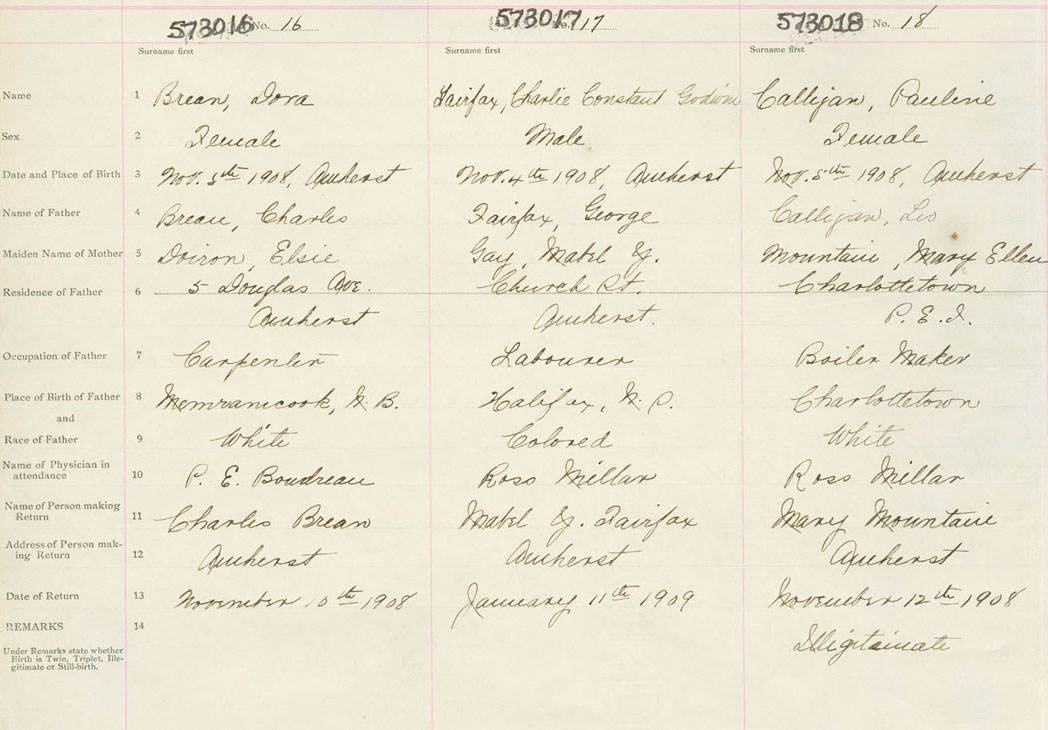 573016 No. 16 573017 No. 17 573018 No. 18
Surname first Surname first Surname first
Name 1 Brean, Dora Fairfax, Charlie Constant Godwin Calligan, Pauline
Sex 2 Female Male Female
Date and Place of Birth 3 Nov. 5th 1908, Amherst Nov. 4th 1908, Amherst Nov. 5th 1908, Amherst
Name of Father 4 Breau, Charles Fairfax, George Calligan, Leo
Maiden Name of Mother 5 Doiron, Elsie Gay, Mabel Mountain, Mary Ellen
Residence of Father 6 5 Douglas Ave. Church St. Charlottetown
Amherst Amherst. P. E. I.
Occupation of Father 7 Carpenter Labourer Boiler Maker
Place of Birth of Father 8 Memramcook, N. B. Halifax, N. S. Charlottetown
and
Race of Father 9 White Colored White
Name of Physician in
attendance 10 P. E. Boudreau Ross Millar Ross Millar
Name of Person making
Return 11 Charles Brean Mabel Fairfax Mary Mountain
Address of Person mak-
ing Return 12 Amherst Amherst Amherst
Date of Return 13 November 10th 1908 January 11th 1909 November 12th 1908
REMARKS 14
Under Remarks state whether
Birth is Twin, Triplet, Ille-
gitimate or Still-birth.
Illigitamate